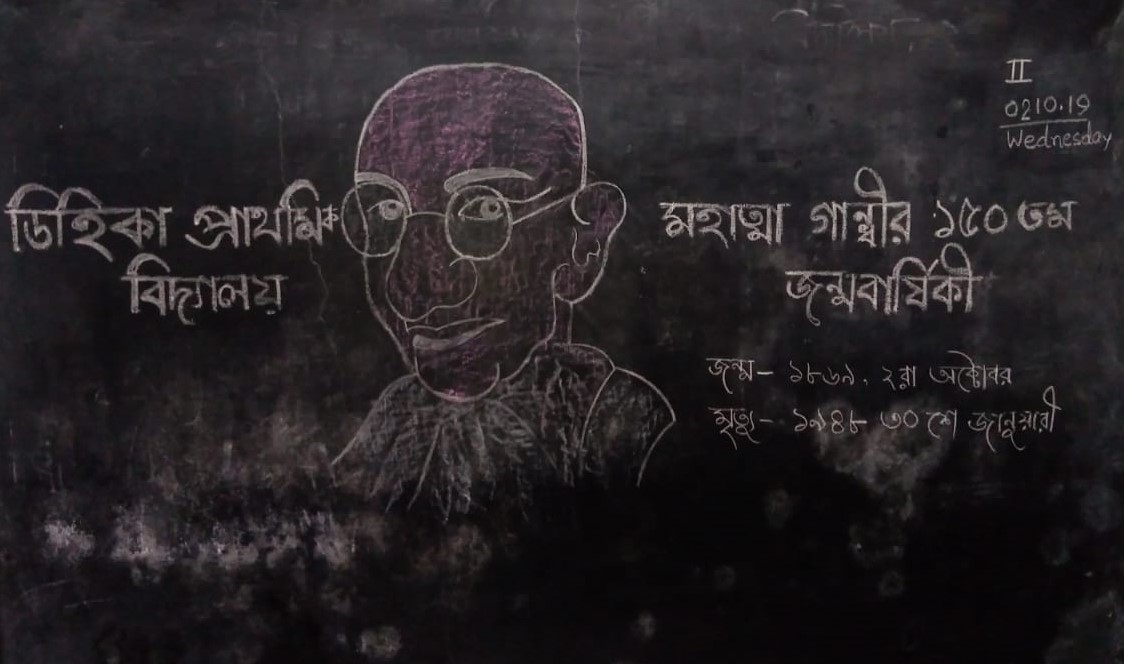 II
0210.19
Wednesday
ডিহিকা প্রাথমিক
বিদ্যালয়
মহাত্মা গান্ধীর ১৫০ তম
জন্মবার্ষিকী
জন্ম - ১৮৬৯. ২রা অক্টোবর
মৃত্যু - ১৯৪৮ ৩০ শে জানুয়ারী